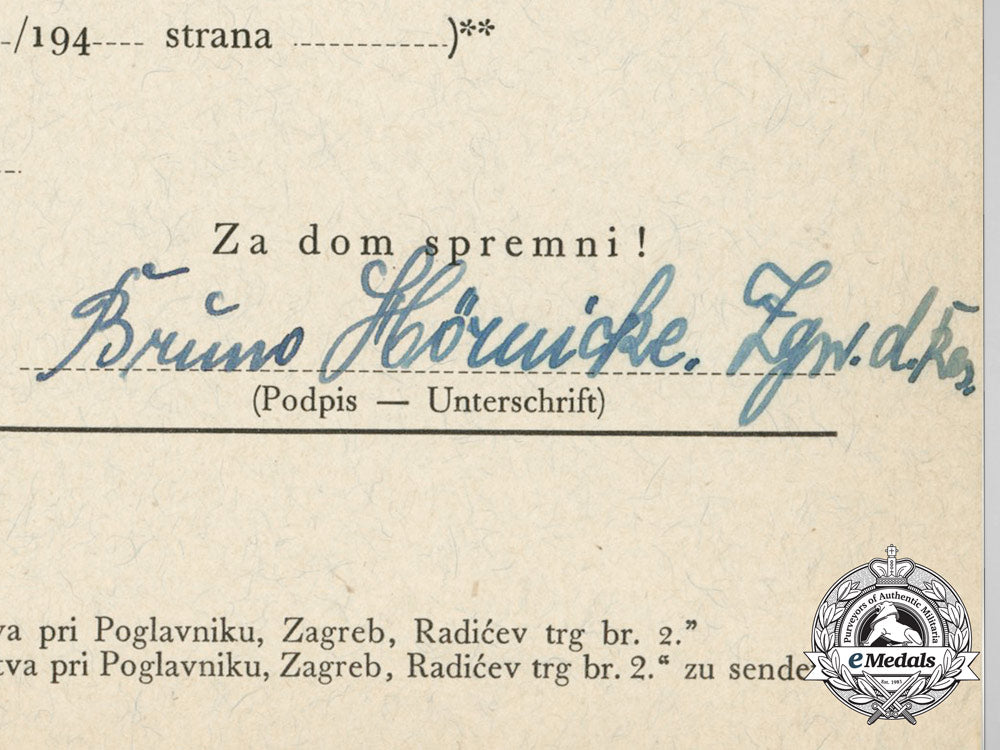 -/194---- strana ............)**
Za dom spremni!
Bruno Hörnicke. Zgw. d. Res.
(Podpis — Unterschrift)
va pri Poglavniku, Zagreb, Radićev trg br. 2.”
tva pri Poglavniku, Zagreb, Radićev trg br. 2.“ zu sende
Purveyors of Authentic Militaria
eMedals
Est. 1985